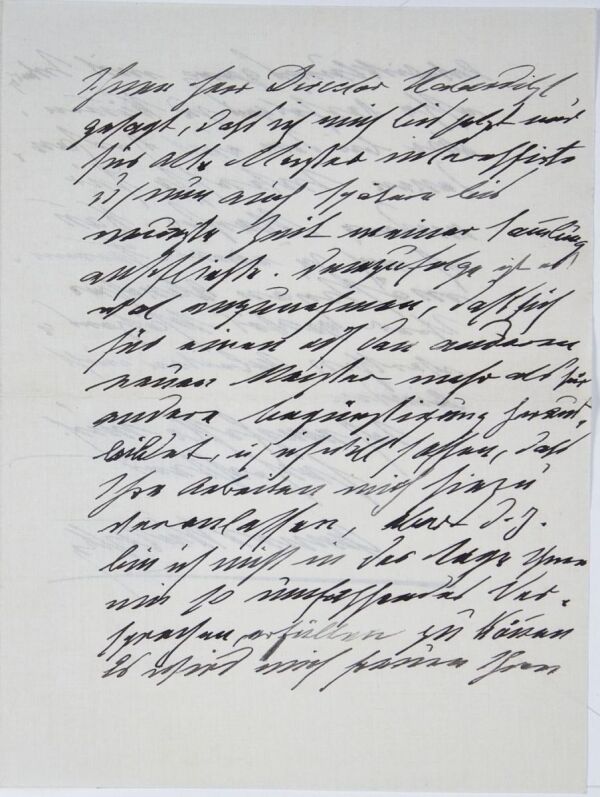 Ihnen Herr Director
gesagt, daß ich mich bis jetzt nur
für alte Meister interessirte
u. nun auch später bis
neueste Zeit meiner Samlung
anschließe. Demzufolge ist es
wol anzunehmen, daß sich
für einen od den anderen
neuen Meister mehr als für
andere begünstigung heraus-
bildet, u. ich will hoffen, daß
Ihre Arbeiten mich hiezu
veranlassen, aber d. J.
bin ich nicht in der Lage Ihnen
ein so umfassendes Ver-
sprechen erfüllen zu können
Es wird mich freuen Ihren